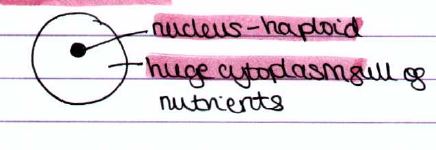 nucleus-haploid
huge cytoplasm full of
nutrients